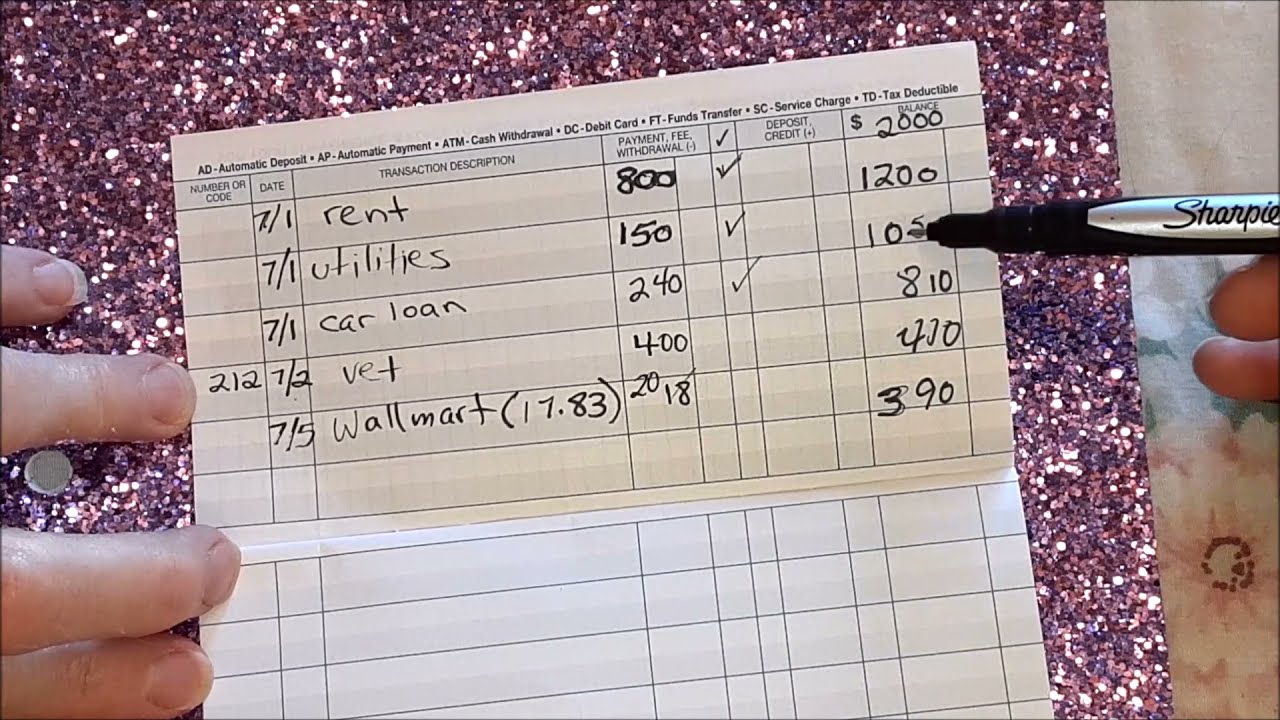 AD-Automatic Deposit • AP-Automatic Payment • ATM-Cash Withdrawal • DC-Debit Card • FT-Funds Transfer • SC-Service Charge • TD-Tax Deductible
NUMBER OR CODE DATE TRANSACTION DESCRIPTION PAYMENT, FEE, WITHDRAWAL (-) ✓ DEPOSIT, CREDIT (+) BALANCE
$ 2000
7/1 rent 800 ✓ 1200
7/1 utilities 150 ✓
7/1 car loan 240 ✓ 810
212 7/2 vet 400 410
7/5 Wallmart (17.83) 20 18 390
Sharpie